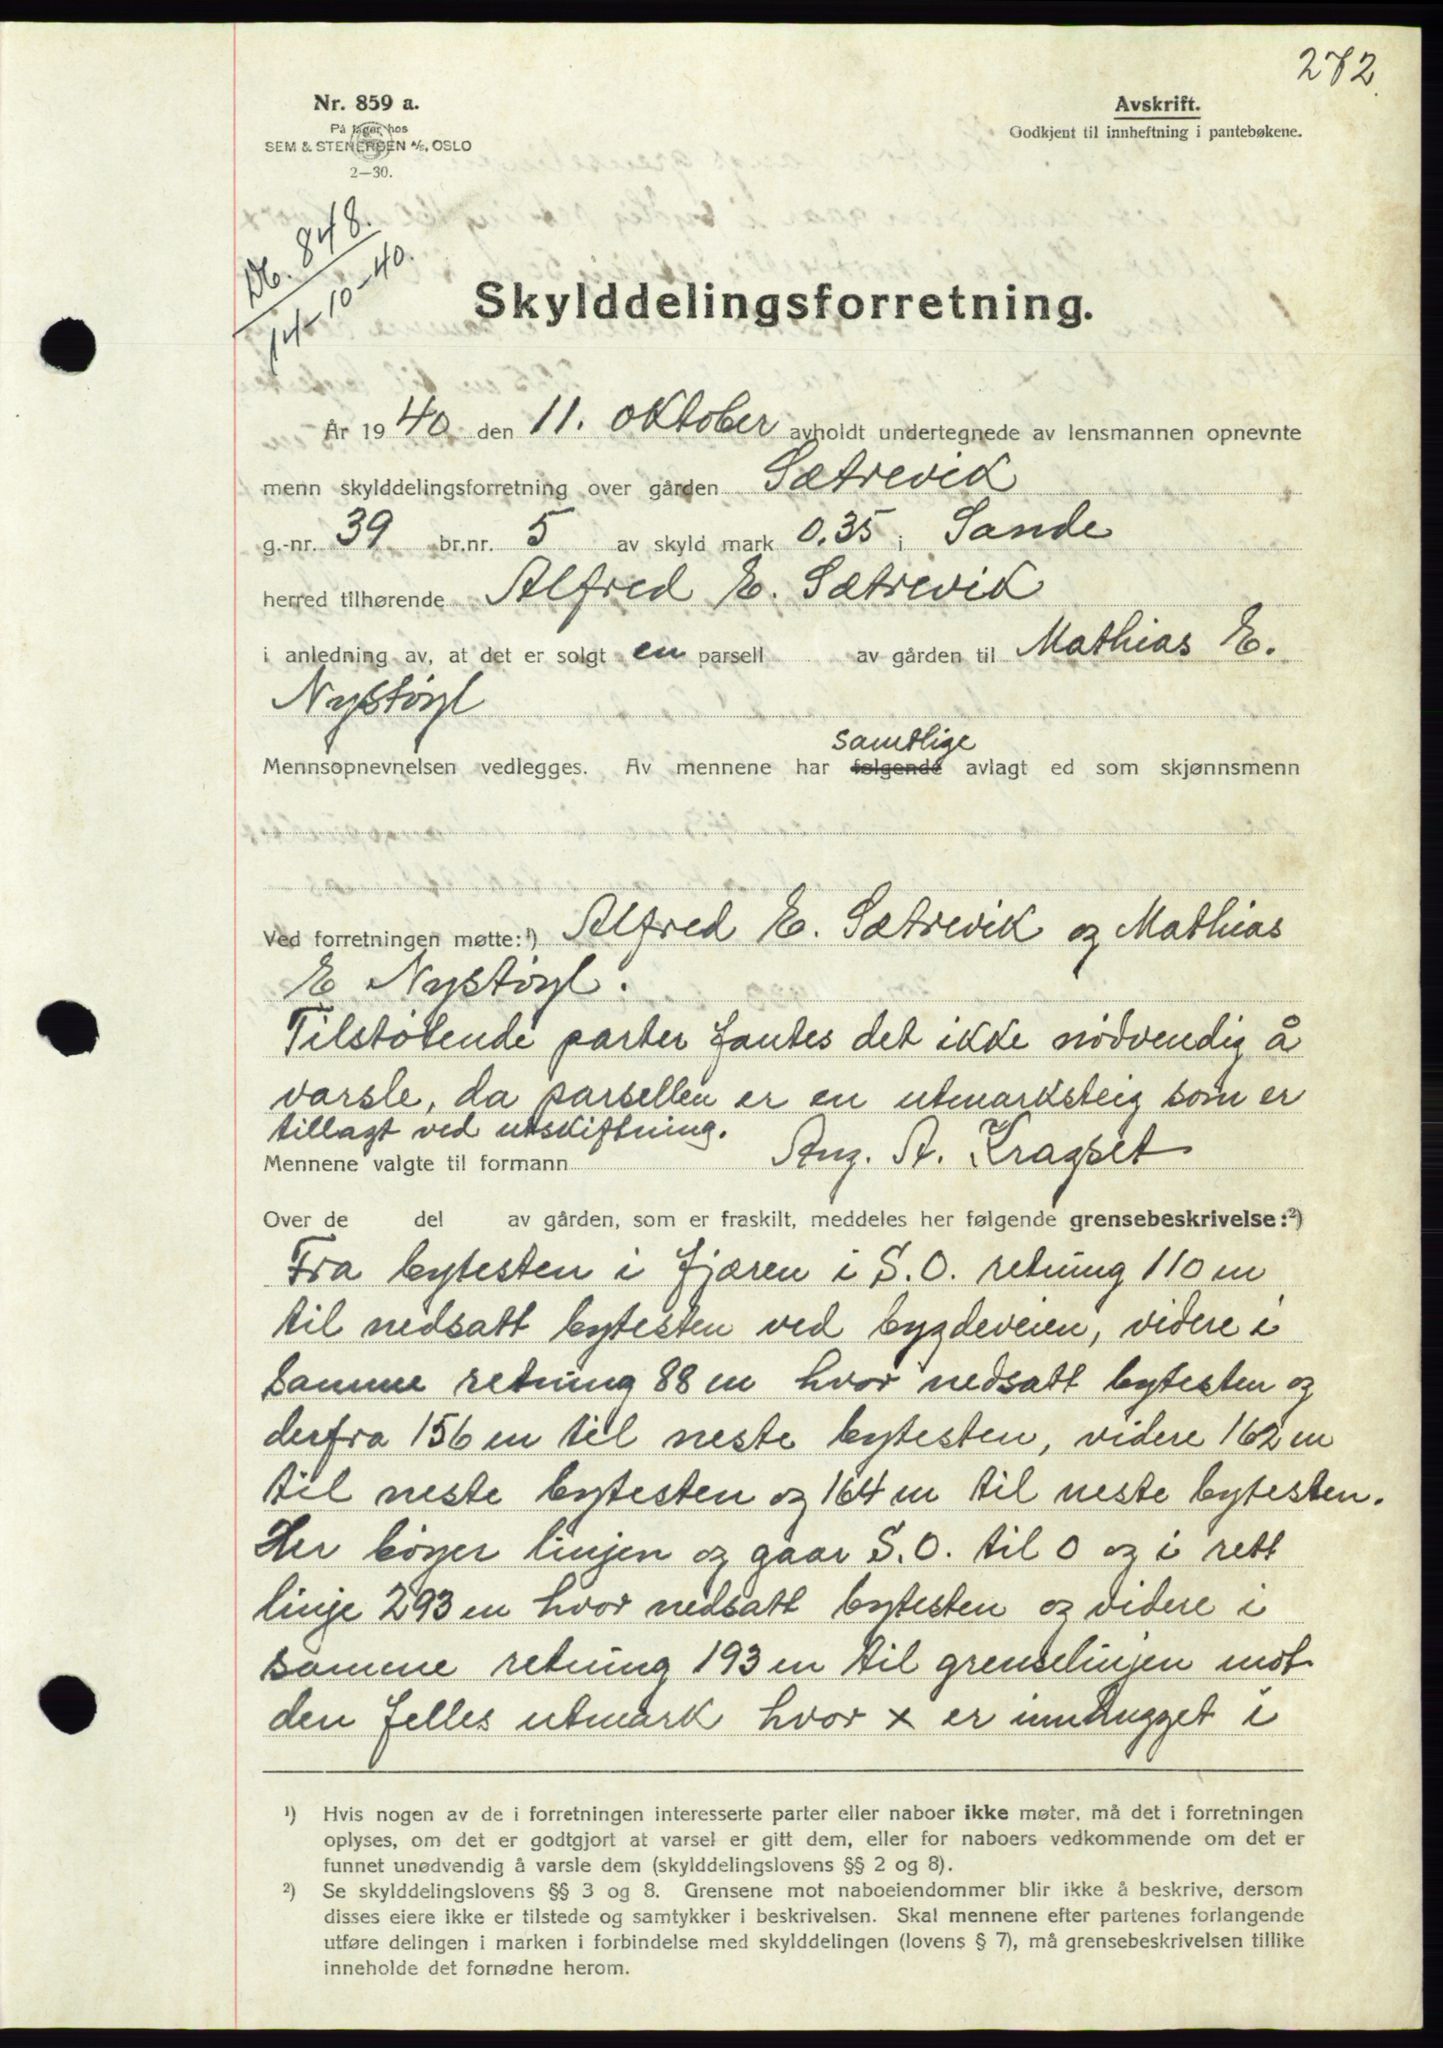 272
Nr. 859 a.
På lager hos
SEM & STENERSEN A/S, OSLO
2—30.
Avskrift.
Godkjent til innheftning i pantebøkene.
Db. 848.
14-10-40.
Skylddelingsforretning.
År 1940 den 11. oktober avholdt undertegnede av lensmannen opnevnte
menn skylddelingsforretning over gården Sætrevik
g.-nr. 39 br.nr. 5 av skyld mark 0.35 i Sande
herred tilhørende Alfred E. Sætrevik
i anledning av, at det er solgt en parsell av gården til Mathias E.
Nystøyl
samtlige
Mennsopnevnelsen vedlegges. Av mennene har følgende avlagt ed som skjønnsmenn
Ved forretningen møtte:¹) Alfred E. Sætrevik og Mathias
E Nystøyl.
Tilstøtende parter fantes det ikke nødvendig å
varsle, da parsellen er en utmarksteig som er
tillagt ved utskiftning.
Mennene valgte til formann Aug. A. Kragset
Over de del av gården, som er fraskilt, meddeles her følgende grensebeskrivelse:²)
Fra bytesten i fjæren i S.O. retning 110 m
til nedsatt bytesten ved bygdeveien, videre i
samme retning 88 m hvor nedsatt bytesten og
derfra 156 m til neste bytesten, videre 162 m
til neste bytesten og 164 m til neste bytesten.
Her bøyer linjen og gaar S.O. til O og i rett
linje 293 m hvor nedsatt bytesten og videre i
samme retning 193 m til grenselinjen mot
den felles utmark hvor x er innhugget i
¹) Hvis nogen av de i forretningen interesserte parter eller naboer ikke møter, må det i forretningen
oplyses, om det er godtgjort at varsel er gitt dem, eller for naboers vedkommende om det er
funnet unødvendig å varsle dem (skylddelingslovens §§ 2 og 8).
²) Se skylddelingslovens §§ 3 og 8. Grensene mot naboeiendommer blir ikke å beskrive, dersom
disses eiere ikke er tilstede og samtykker i beskrivelsen. Skal mennene efter partenes forlangende
utføre delingen i marken i forbindelse med skylddelingen (lovens § 7), må grensebeskrivelsen tillike
inneholde det fornødne herom.